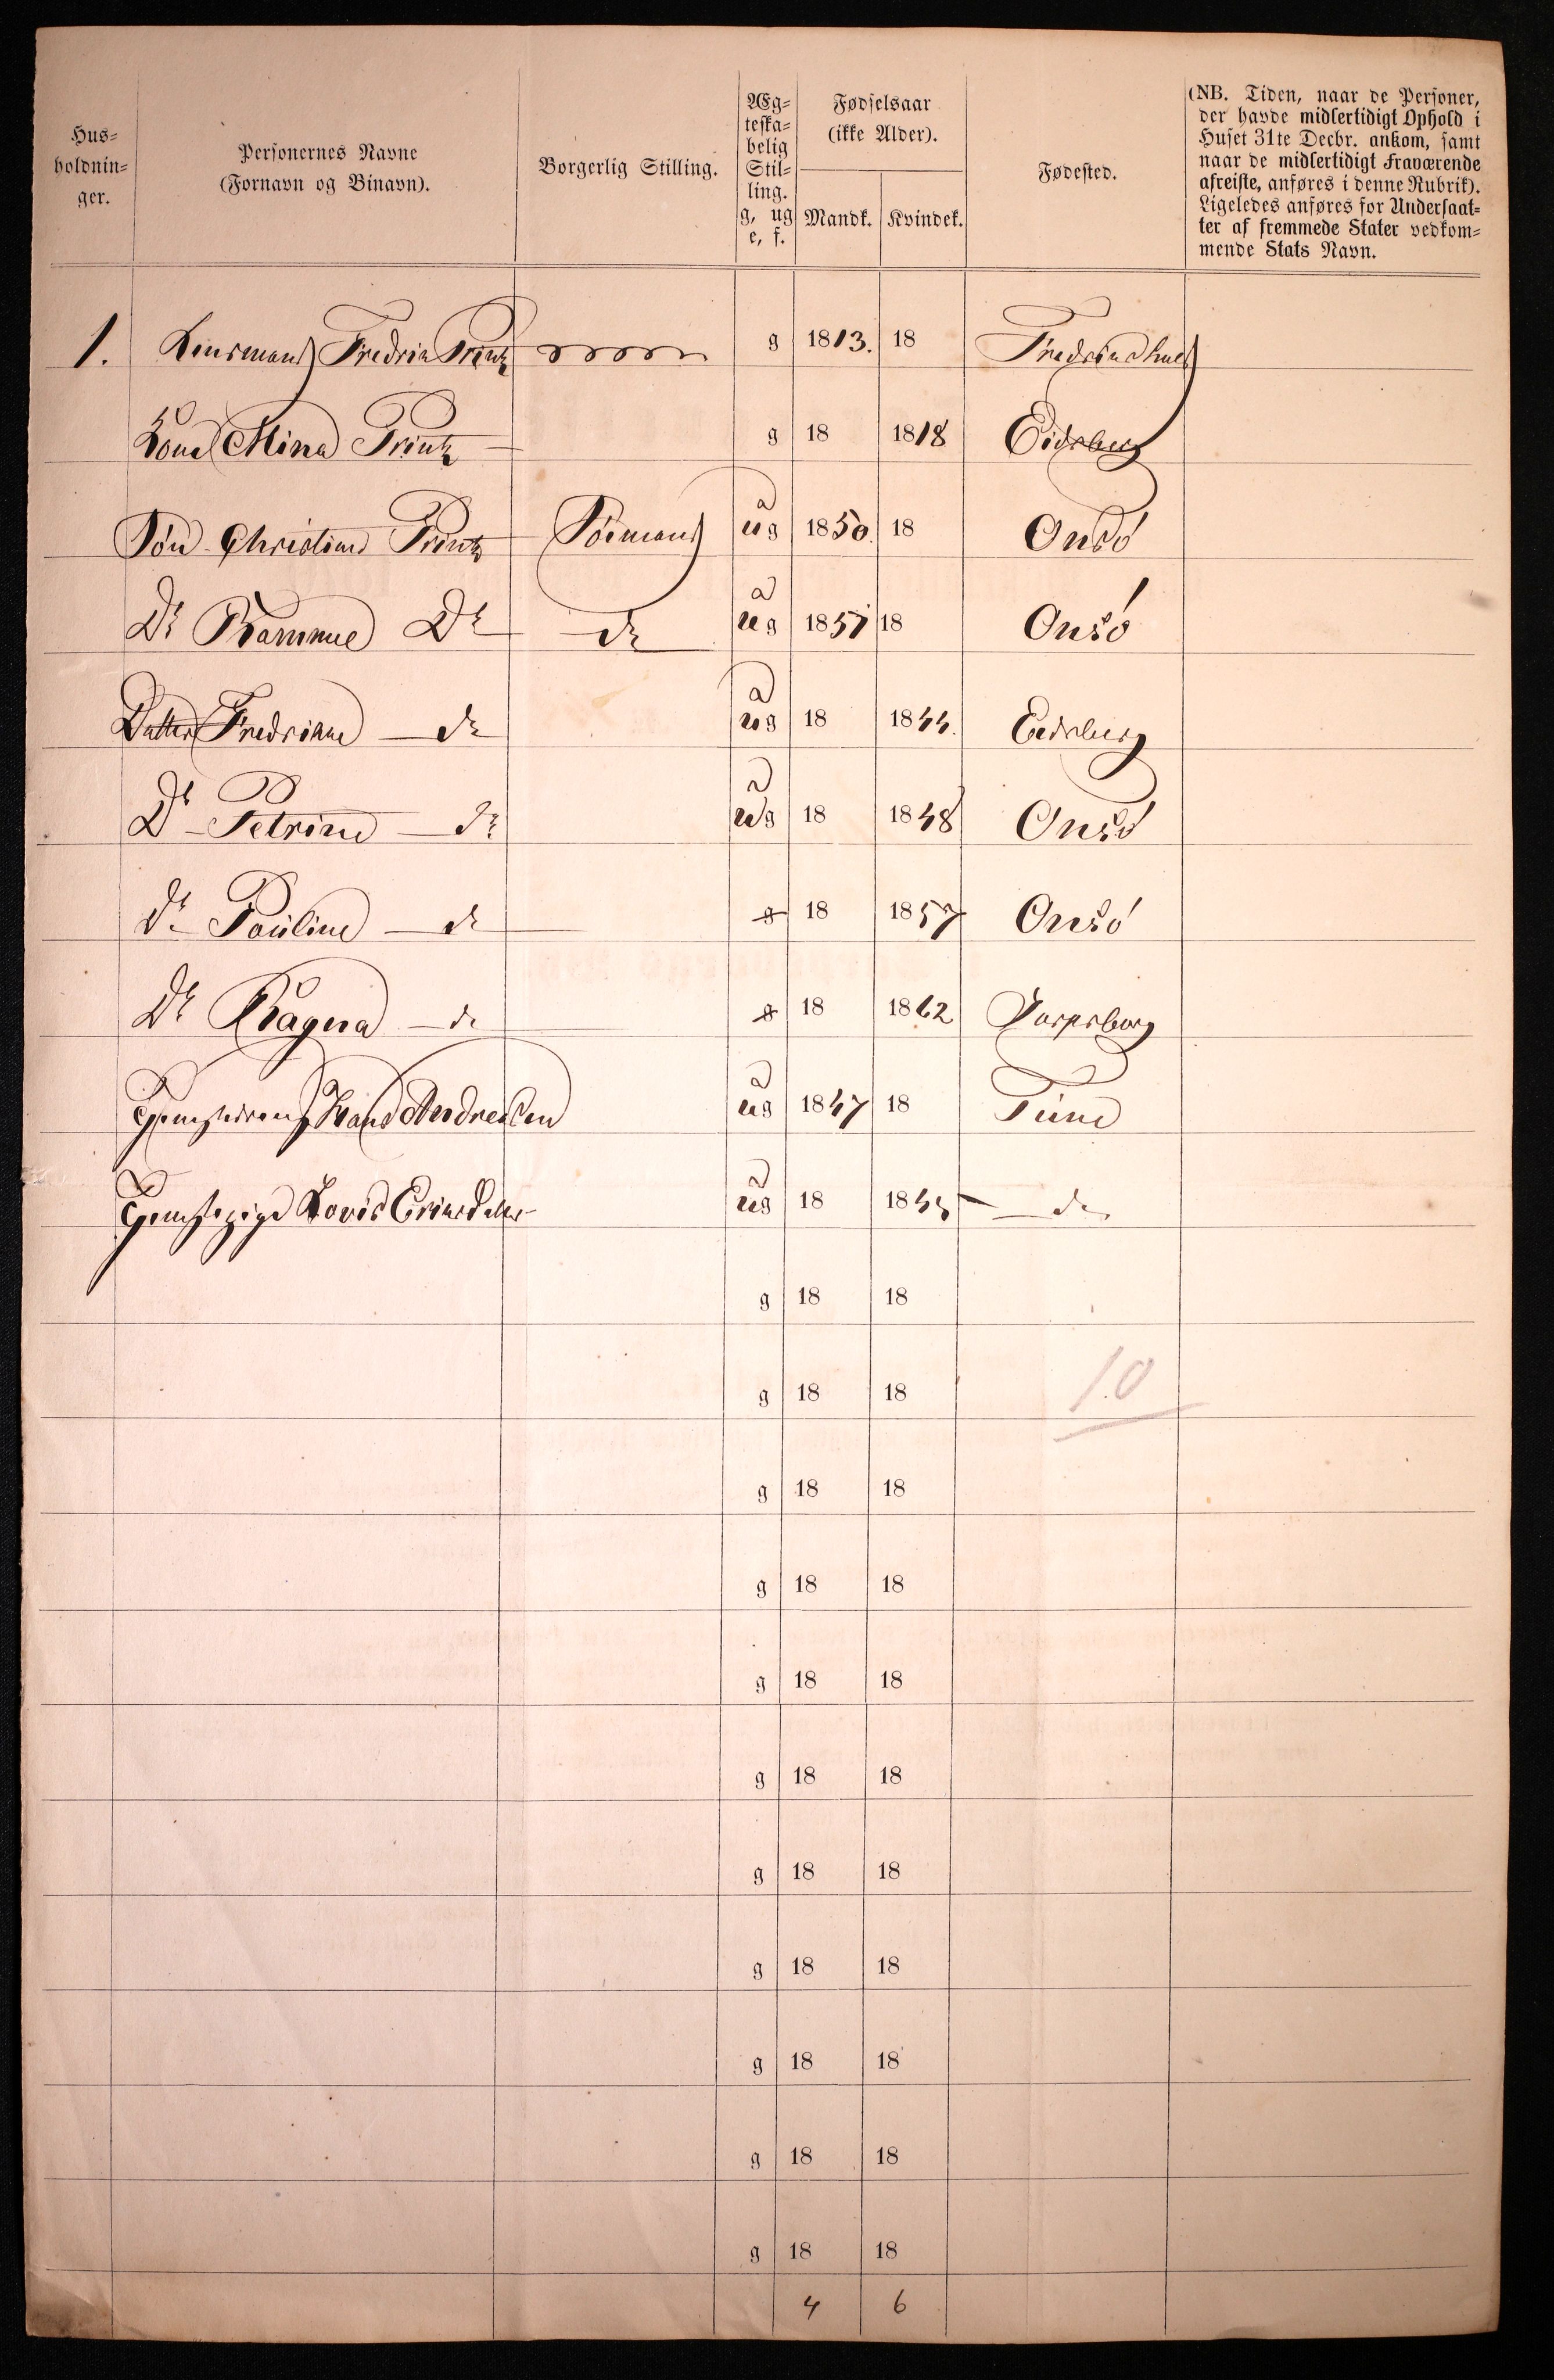 Hus-
holdnin-
ger.
Personernes Navne
(Fornavn og Binavn).
Borgerlig Stilling.
Æg-
teska-
belig
Stil-
ling.
g, ug
e, f.
Fødselsaar
(ikke Alder).
Mandk. Kvindek.
Fødested.
(NB. Tiden, naar de Personer,
der havde midlertidigt Ophold i
Huset 31te Decbr. ankom, samt
naar de midlertidigt Fraværende
afreiste, anføres i denne Rubrik).
Ligeledes anføres for Undersaat-
ter af fremmede Stater vedkom-
mende Stats Navn.
1. Lensmand Fredrik Printz g 1813. 18 Fredrikshald
Kone Mina Printz g 18 1818 Eidsberg
Søn Christian Printz Sømand ug 1850. 18 Onsö
Do Rammue Do do ug 1851 18 Onsö
Datter Fredrikke do ug 18 1844. Eidsberg
Do Petrine do ug 18 1848 Onsö
do Pauline do g 18 1857 Onsö
Do Ragna do g 18 1862 Sarpsborg
Hans Andresen ug 1847 18 Tune
Tjenestepige Lovis Eriksdatter ug 18 1845 do
g 18 18
g 18 18
10
g 18 18
g 18 18
g 18 18
g 18 18
g 18 18
g 18 18
g 18 18
g 18 18
g 18 18
4 6